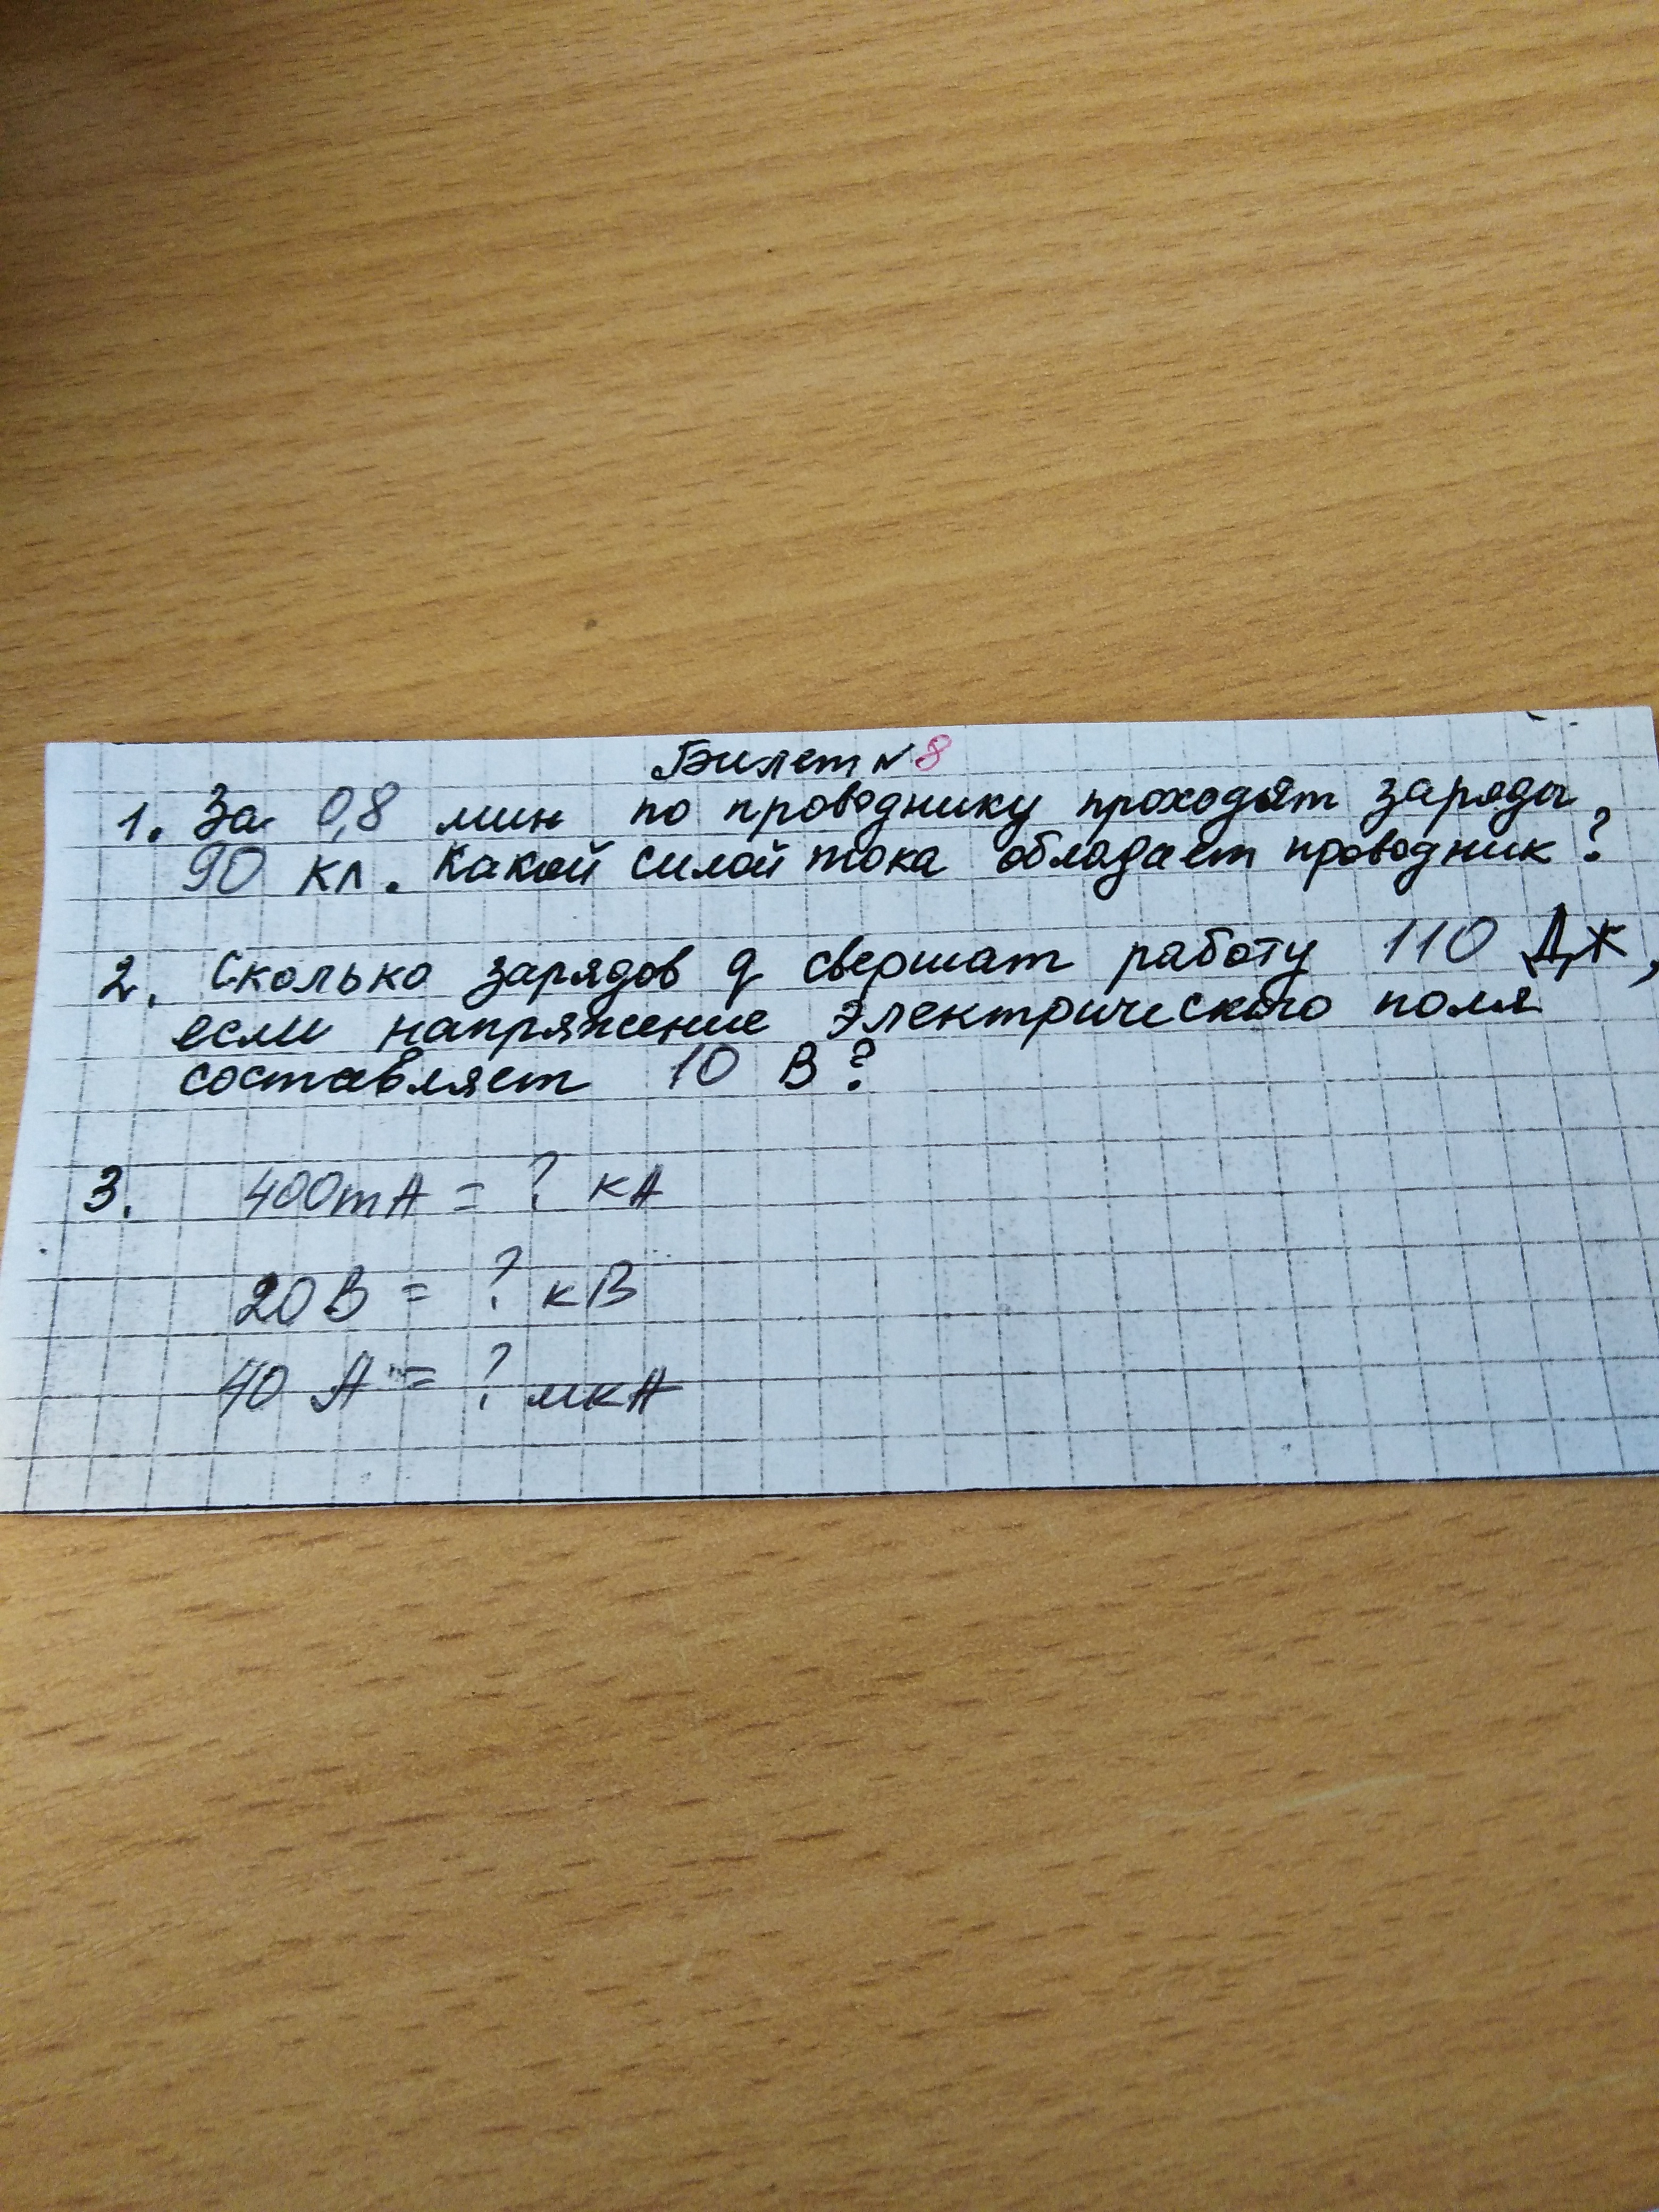 Билет № 8
1. За 0,8 мин по проводнику проходят заряды
90 Кл. Какой силой тока обладает проводник?
2. Сколько зарядов q свершат работу 110 Дж,
если напряжение электрического поля
составляет 10 В?
3. 400mA = ? кА
20В = ? кВ
40 А = ? мкА